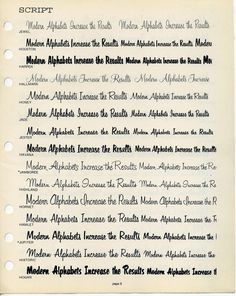 SCRIPT
Modern Alphabets Increase the Results Modern Alphabets Increase the Results
JEWEL
Modern Alphabets Increase the Results Modern Alphabets Increase the Results Modern
HOUSTON
Modern Alphabets Increase the Results Modern Alphabets Increase the Results Mod
HARPER
Modern Alphabets Increase the Results Modern Alphabets Increase
HALLMARK
Modern Alphabets Increase the Results Modern Alphabets Increase the Results
HONEY
Modern Alphabets Increase the Results Modern Alphabets Increase the Results
JADE
Modern Alphabets Increase the Results Modern Alphabets Increase the Results
JESTER
Modern Alphabets Increase the Results Modern Alphabets Increase the Results
HAVANA
Modern Alphabets Increase the Results Modern Alphabets Increase the Results
JAMBOREE
Modern Alphabets Increase the Results Modern Alphabets Increase the Results
HIGHLAND
Modern Alphabets Increase the Results Modern Alphabets Increase the Results
HORNET
Modern Alphabets Increase the Results Modern Alphabets Increase the Results
HAMLET
Modern Alphabets Increase the Results Modern Alphabets Increase the Results
JUPITER
Modern Alphabets Increase the Results Modern Alphabets Increase the Results
HISTORIC
Modern Alphabets Increase the Results Modern Alphabets Increase the Results
HOGAN
page 5